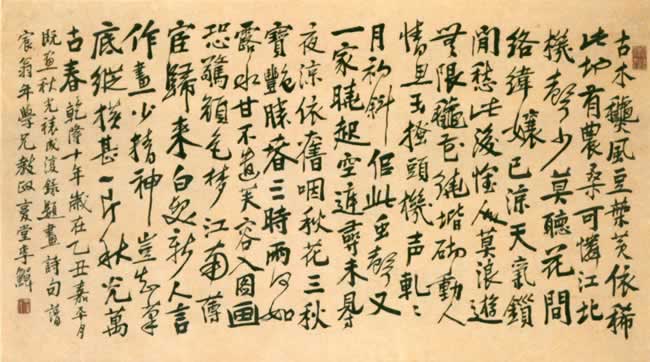 古木風豆葉黃依稀
此地有農桑可憐江北
機聲少莫聽花間
絡緯孃已涼天氣鎖
閒愁此後似莫浪遊
無限繞堦砌動人
情玉搔頭機声軋〻
月初斜但此虫聲又
一家曉起空庭尋未得
夜涼依舊咽秋花三秋
艷勝春三時雨如
露水甘不道芙容入圖画
恐驚顏色梦江南薄
宦歸來白髮新人言
作畫少精神豈知筆
底縱橫甚一片秋光萬
古春 乾隆十年歲在乙丑嘉平月
既画秋光成復錄題畫詩句
宸翁年學兄教政 复堂李鱓